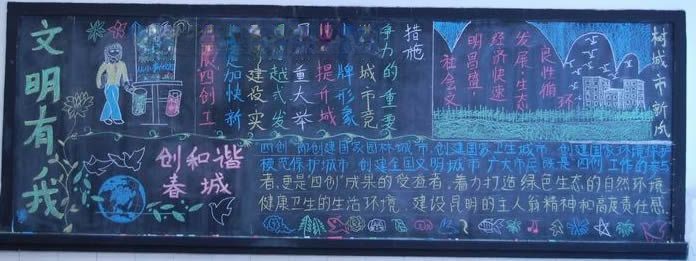 文明有我
创和谐
春城
措施
争力的重要
城市竞
牌形象
提升城
重大举
越式发
建设实
是加快新
展四创工
树城市新风
良性循环
发展·生态
经济快速
明昌盛
社会文
"四创"即创建国家园林城市,创建国家卫生城市,创建国家环境保护
模范保护城市,创建全国文明城市,广大市民既是"四创"工作的参与
者,更是"四创"成果的受益者,着力打造绿色生态的自然环境
健康卫生的生活环境,建设昆明的主人翁精神和高度责任感.